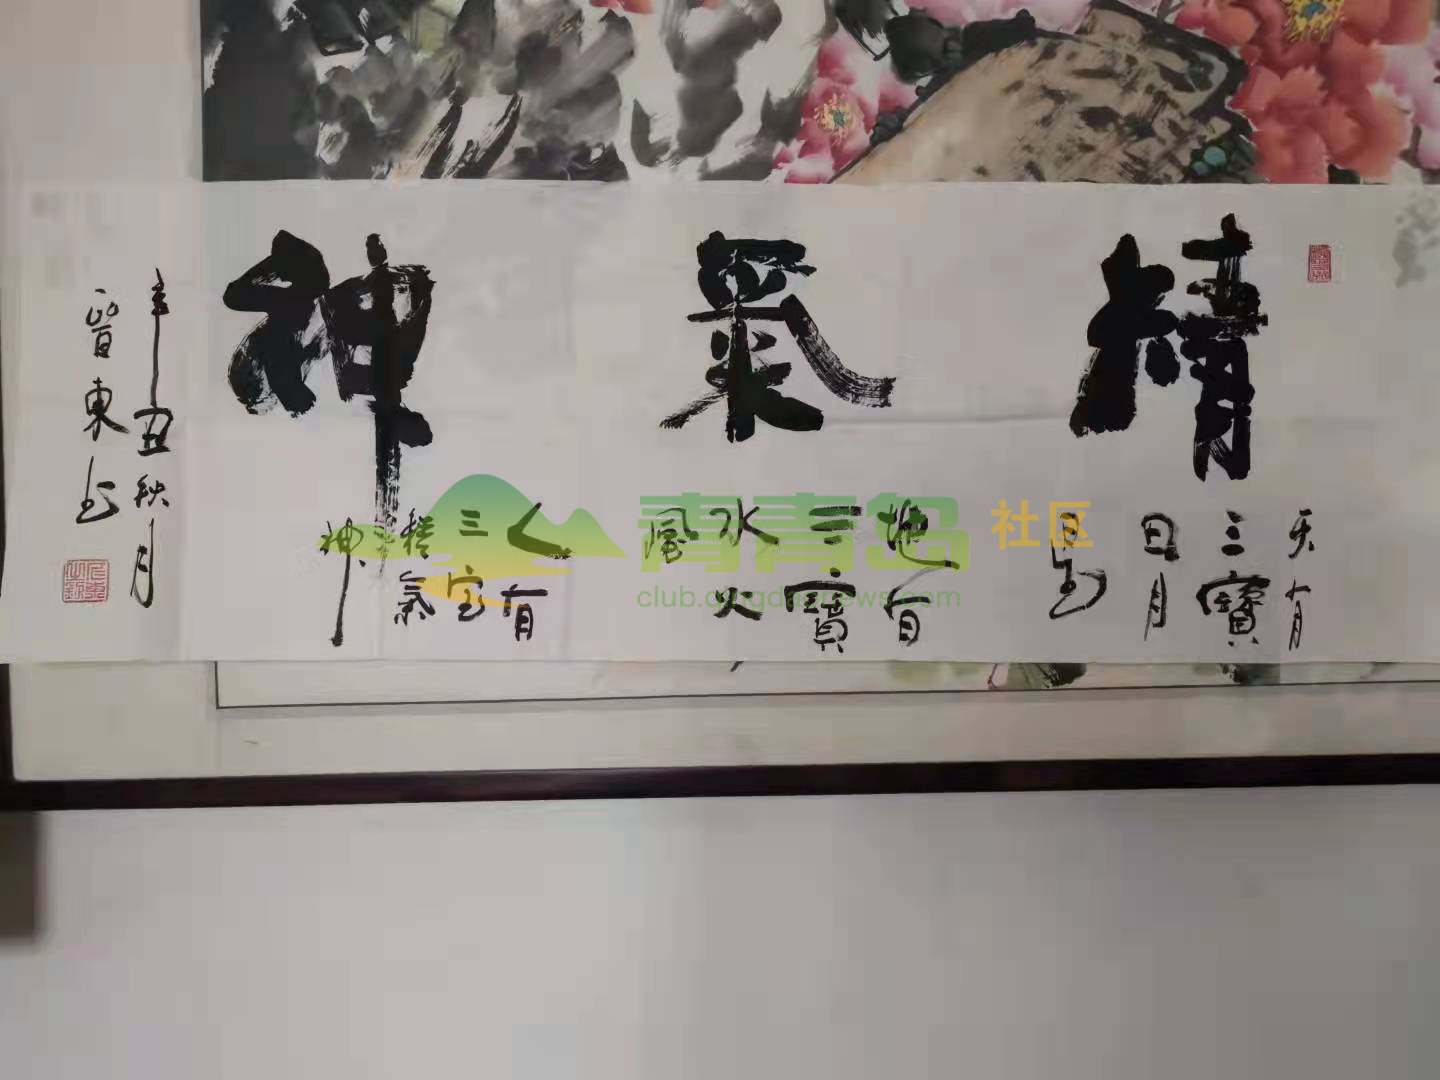 精氣神
天有
三寶
日月
星
地有
三寶
水火
風
人有
三宝
精氣
神
辛丑秋月
晋東书
青青岛社区
club.qingdaonews.com